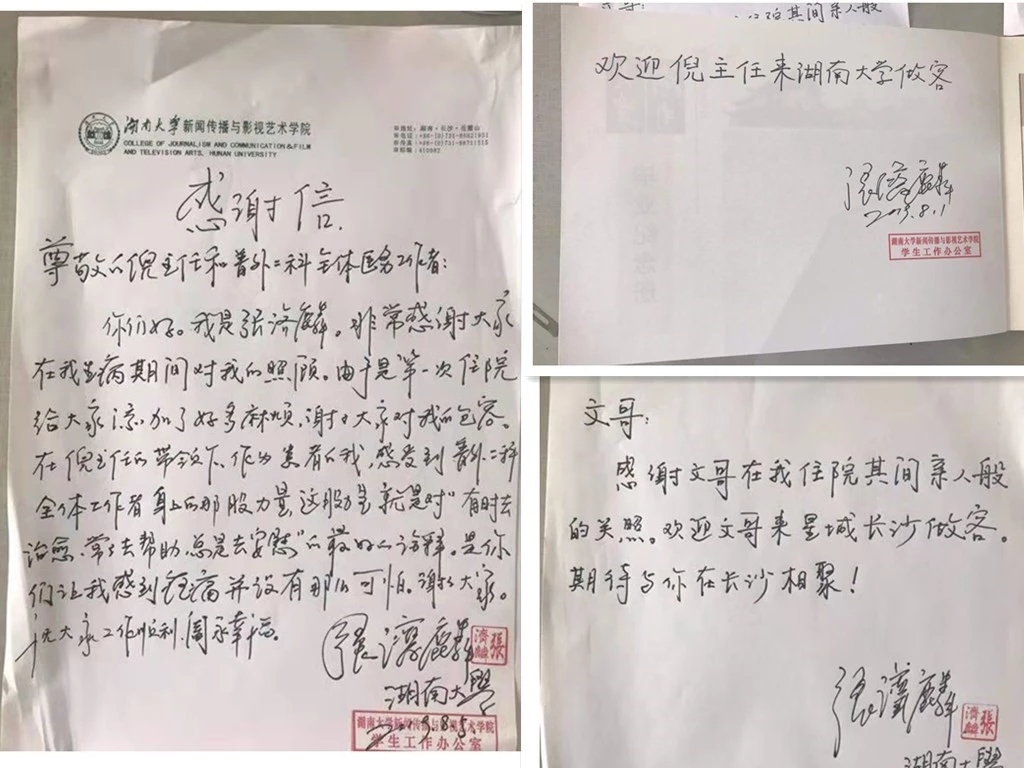 湖南大学新闻传播与影视艺术学院
COLLEGE OF JOURNALISM AND COMMUNICATION & FILM
AND TELEVISION ARTS, HUNAN UNIVERSITY
感谢信
尊敬的倪主任和普外二科全体医务工作者：
你们好。我是张济麟。非常感谢大家
在我生病期间对我的照顾。由于是第一次住院
给大家添加了好多麻烦，谢谢大家对我的包容。
在倪主任的带领下，作为患者的我，感受到普外二科
全体工作者身上的那股力量，这股力量就是对“有时去
治愈，常常去帮助，总是去安慰”的最好的诠释。是你
们让我感到生病并没有那么可怕。谢谢大家。
祝大家工作顺利，阖家幸福。
张济麟
張濟麟
湖南大學
湖南大学新闻传播与影视艺术学院
学生工作办公室
其间亲人般
欢迎倪主任来湖南大学做客
张济麟
8.1
湖南大学新闻传播与影视艺术学院
学生工作办公室
毕业纪念册
文哥：
感谢文哥在我住院其间亲人般
的关照。欢迎文哥来星城长沙做客。
期待与你在长沙相聚！
张济麟
張濟麟
湖南大學